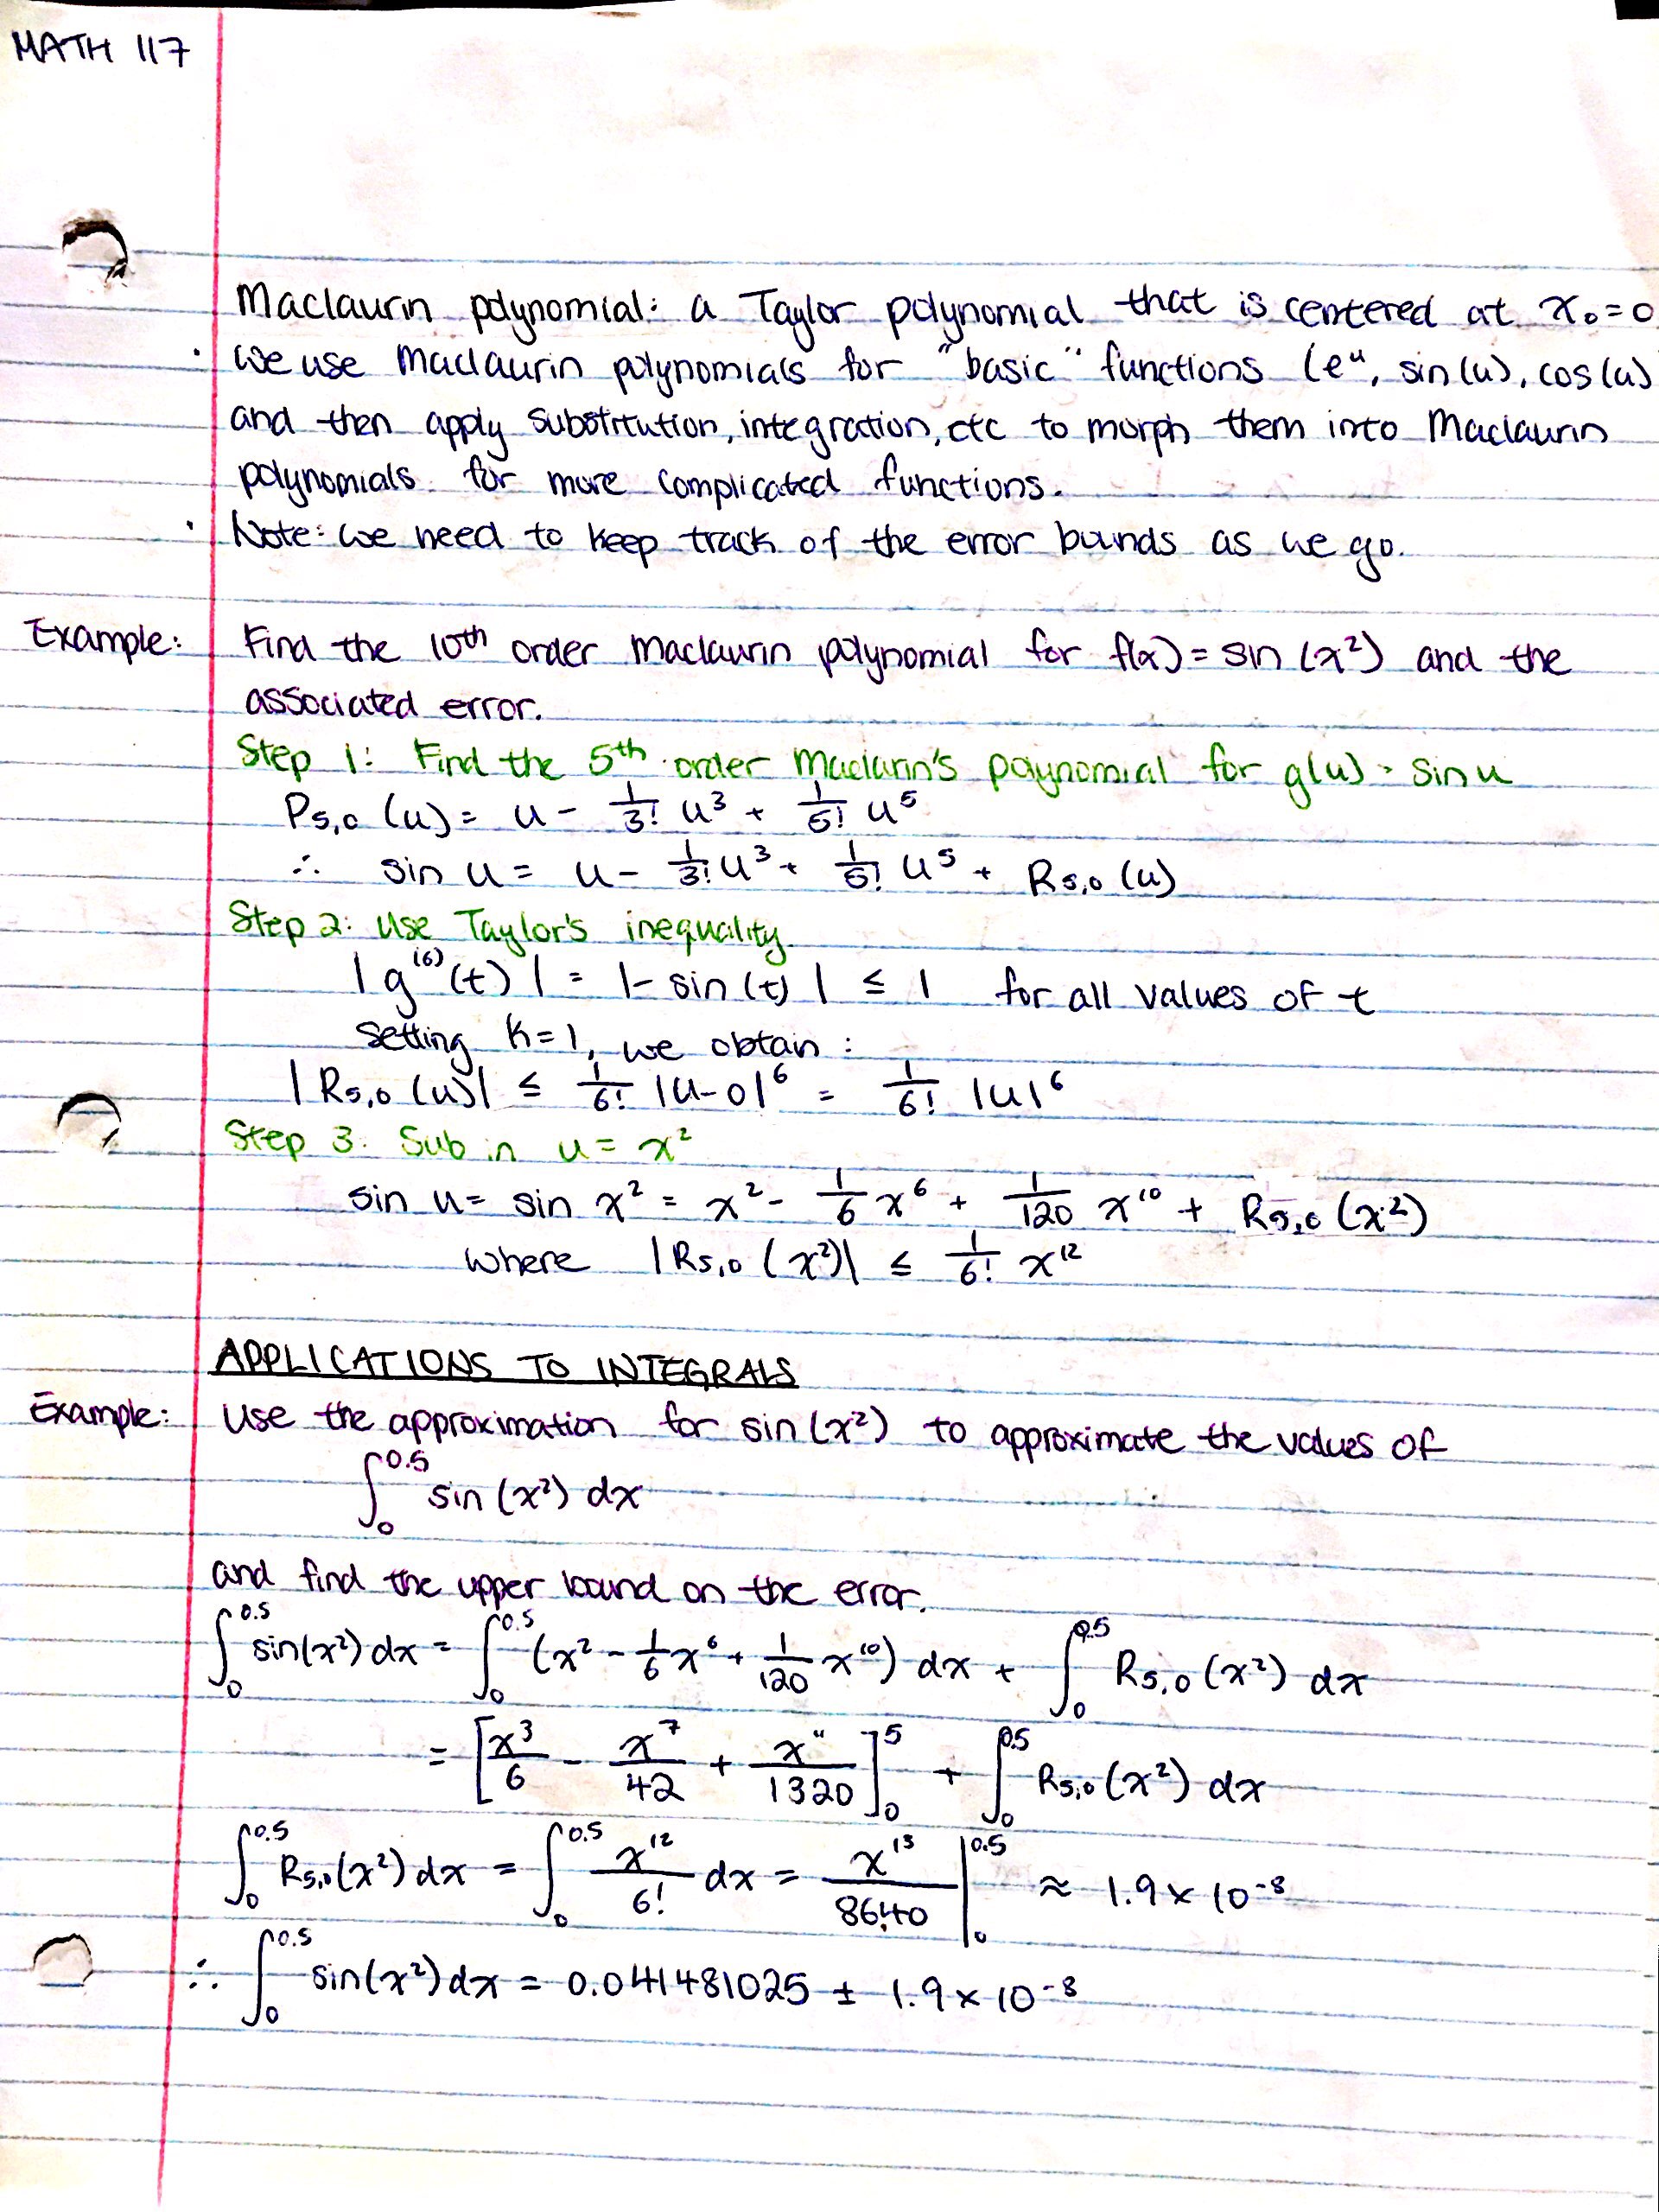 MATH 117
Maclaurin polynomial: a Taylor polynomial that is centered at x₀=0
· We use Maclaurin polynomials for "basic" functions (eᵘ, sin(u), cos(u)
and then apply substitution, integration, etc to morph them into Maclaurin
polynomials for more complicated functions.
· Note: we need to keep track of the error bounds as we go.
Example: Find the 10th order Maclaurin polynomial for f(x) = sin (x²) and the
associated error.
Step 1: Find the 5th order Maclarin's polynomial for g(u) = sin u
P₅,₀ (u) = u - 1/3! u³ + 1/5! u⁵
∴ sin u = u - 1/3! u³ + 1/5! u⁵ + R₅,₀ (u)
Step 2: Use Taylor's inequality
|g⁽⁶⁾(t)| = |- sin(t)| ≤ 1 for all values of t
Setting K=1, we obtain:
|R₅,₀ (u)| ≤ 1/6! |u-0|⁶ = 1/6! |u|⁶
Step 3: Sub in u = x²
sin u = sin x² = x² - 1/6 x⁶ + 1/120 x¹⁰ + R₅,₀ (x²)
where |R₅,₀ (x²)| ≤ 1/6! x¹²
APPLICATIONS TO INTEGRALS
Example: Use the approximation for sin(x²) to approximate the values of
∫₀^0.5 sin (x²) dx
and find the upper bound on the error.
∫₀^0.5 sin(x²) dx = ∫₀^0.5 (x² - 1/6 x⁶ + 1/120 x¹⁰) dx + ∫₀^0.5 R₅,₀ (x²) dx
= [x³/6 - x⁷/42 + x¹¹/1320]₀^5 + ∫₀^0.5 R₅,₀ (x²) dx
∫₀^0.5 R₅,₀(x²) dx = ∫₀^0.5 x¹²/6! dx = x¹³/8640 |₀^0.5 ≈ 1.9 x 10⁻⁸
∴ ∫₀^0.5 sin(x²) dx = 0.041481025 ± 1.9 x 10⁻⁸